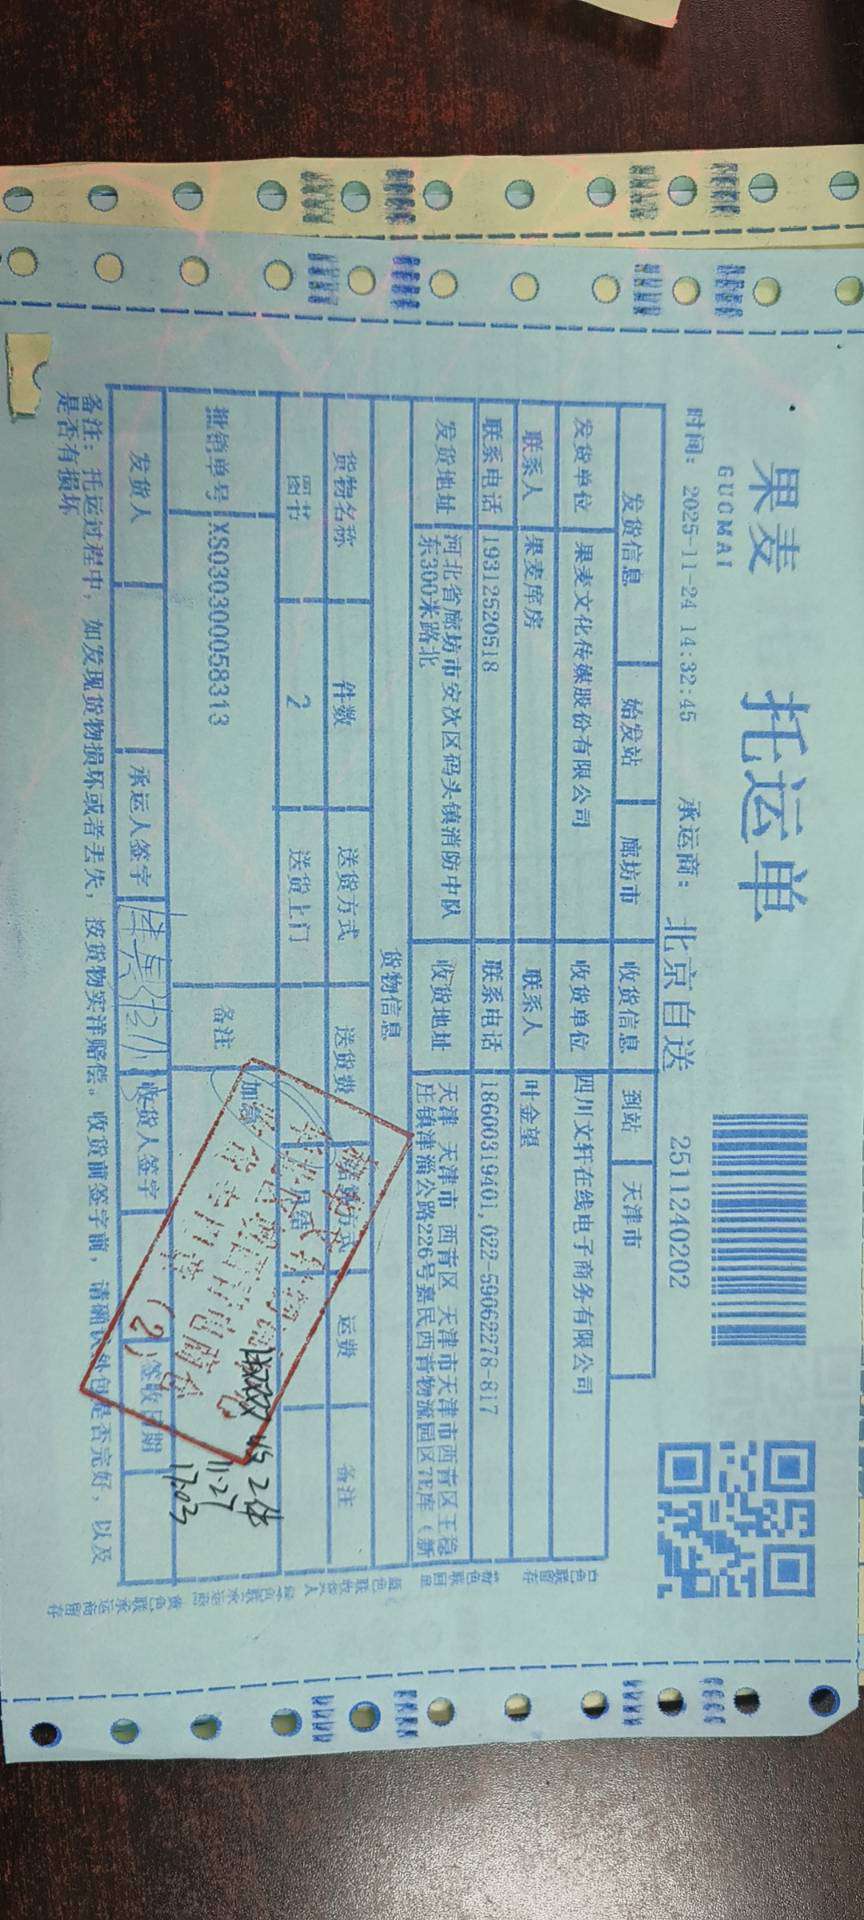 果麦 托运单
GUOMAI
时间：2025-11-24 14:32:45 承运商：北京自送 2511240202
发货信息 始发站 廊坊市 收货信息 到站 天津市
发货单位 果麦文化传媒股份有限公司 收货单位 四川文轩在线电子商务有限公司
联系人 果麦库房 联系人 叶金望
联系电话 19312520518 联系电话 18600319401,022-59062278-817
发货地址 河北省廊坊市安次区码头镇消防中队东300米路北 收货地址 天津 天津市 西青区 天津市天津市西青区王稳庄镇津淄公路226号嘉民西青物流园区7E库（新
货物信息
货物名称 件数 送货方式 送货费 结算方式 运费 备注
图书 2 送货上门 月结
批销单号 XS030300058313 备注 加急
发货人 承运人签字 收货人签字 签收日期
(2)
11.27
17:03
备注：托运过程中，如发现货物损坏或者丢失，按货物实洋赔偿。收货前签字前，请确认外包是否完好，以及
是否有损坏
白色联留存